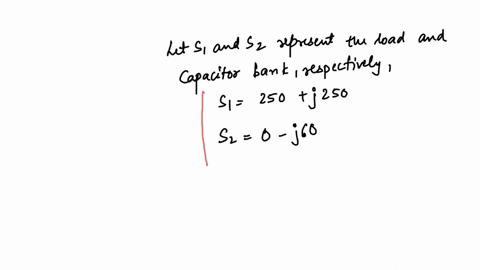 Let S₁ and S₂ represent the load and
Capacitor bank, respectively,
S₁ = 250 + j 250
S₂ = 0 - j60